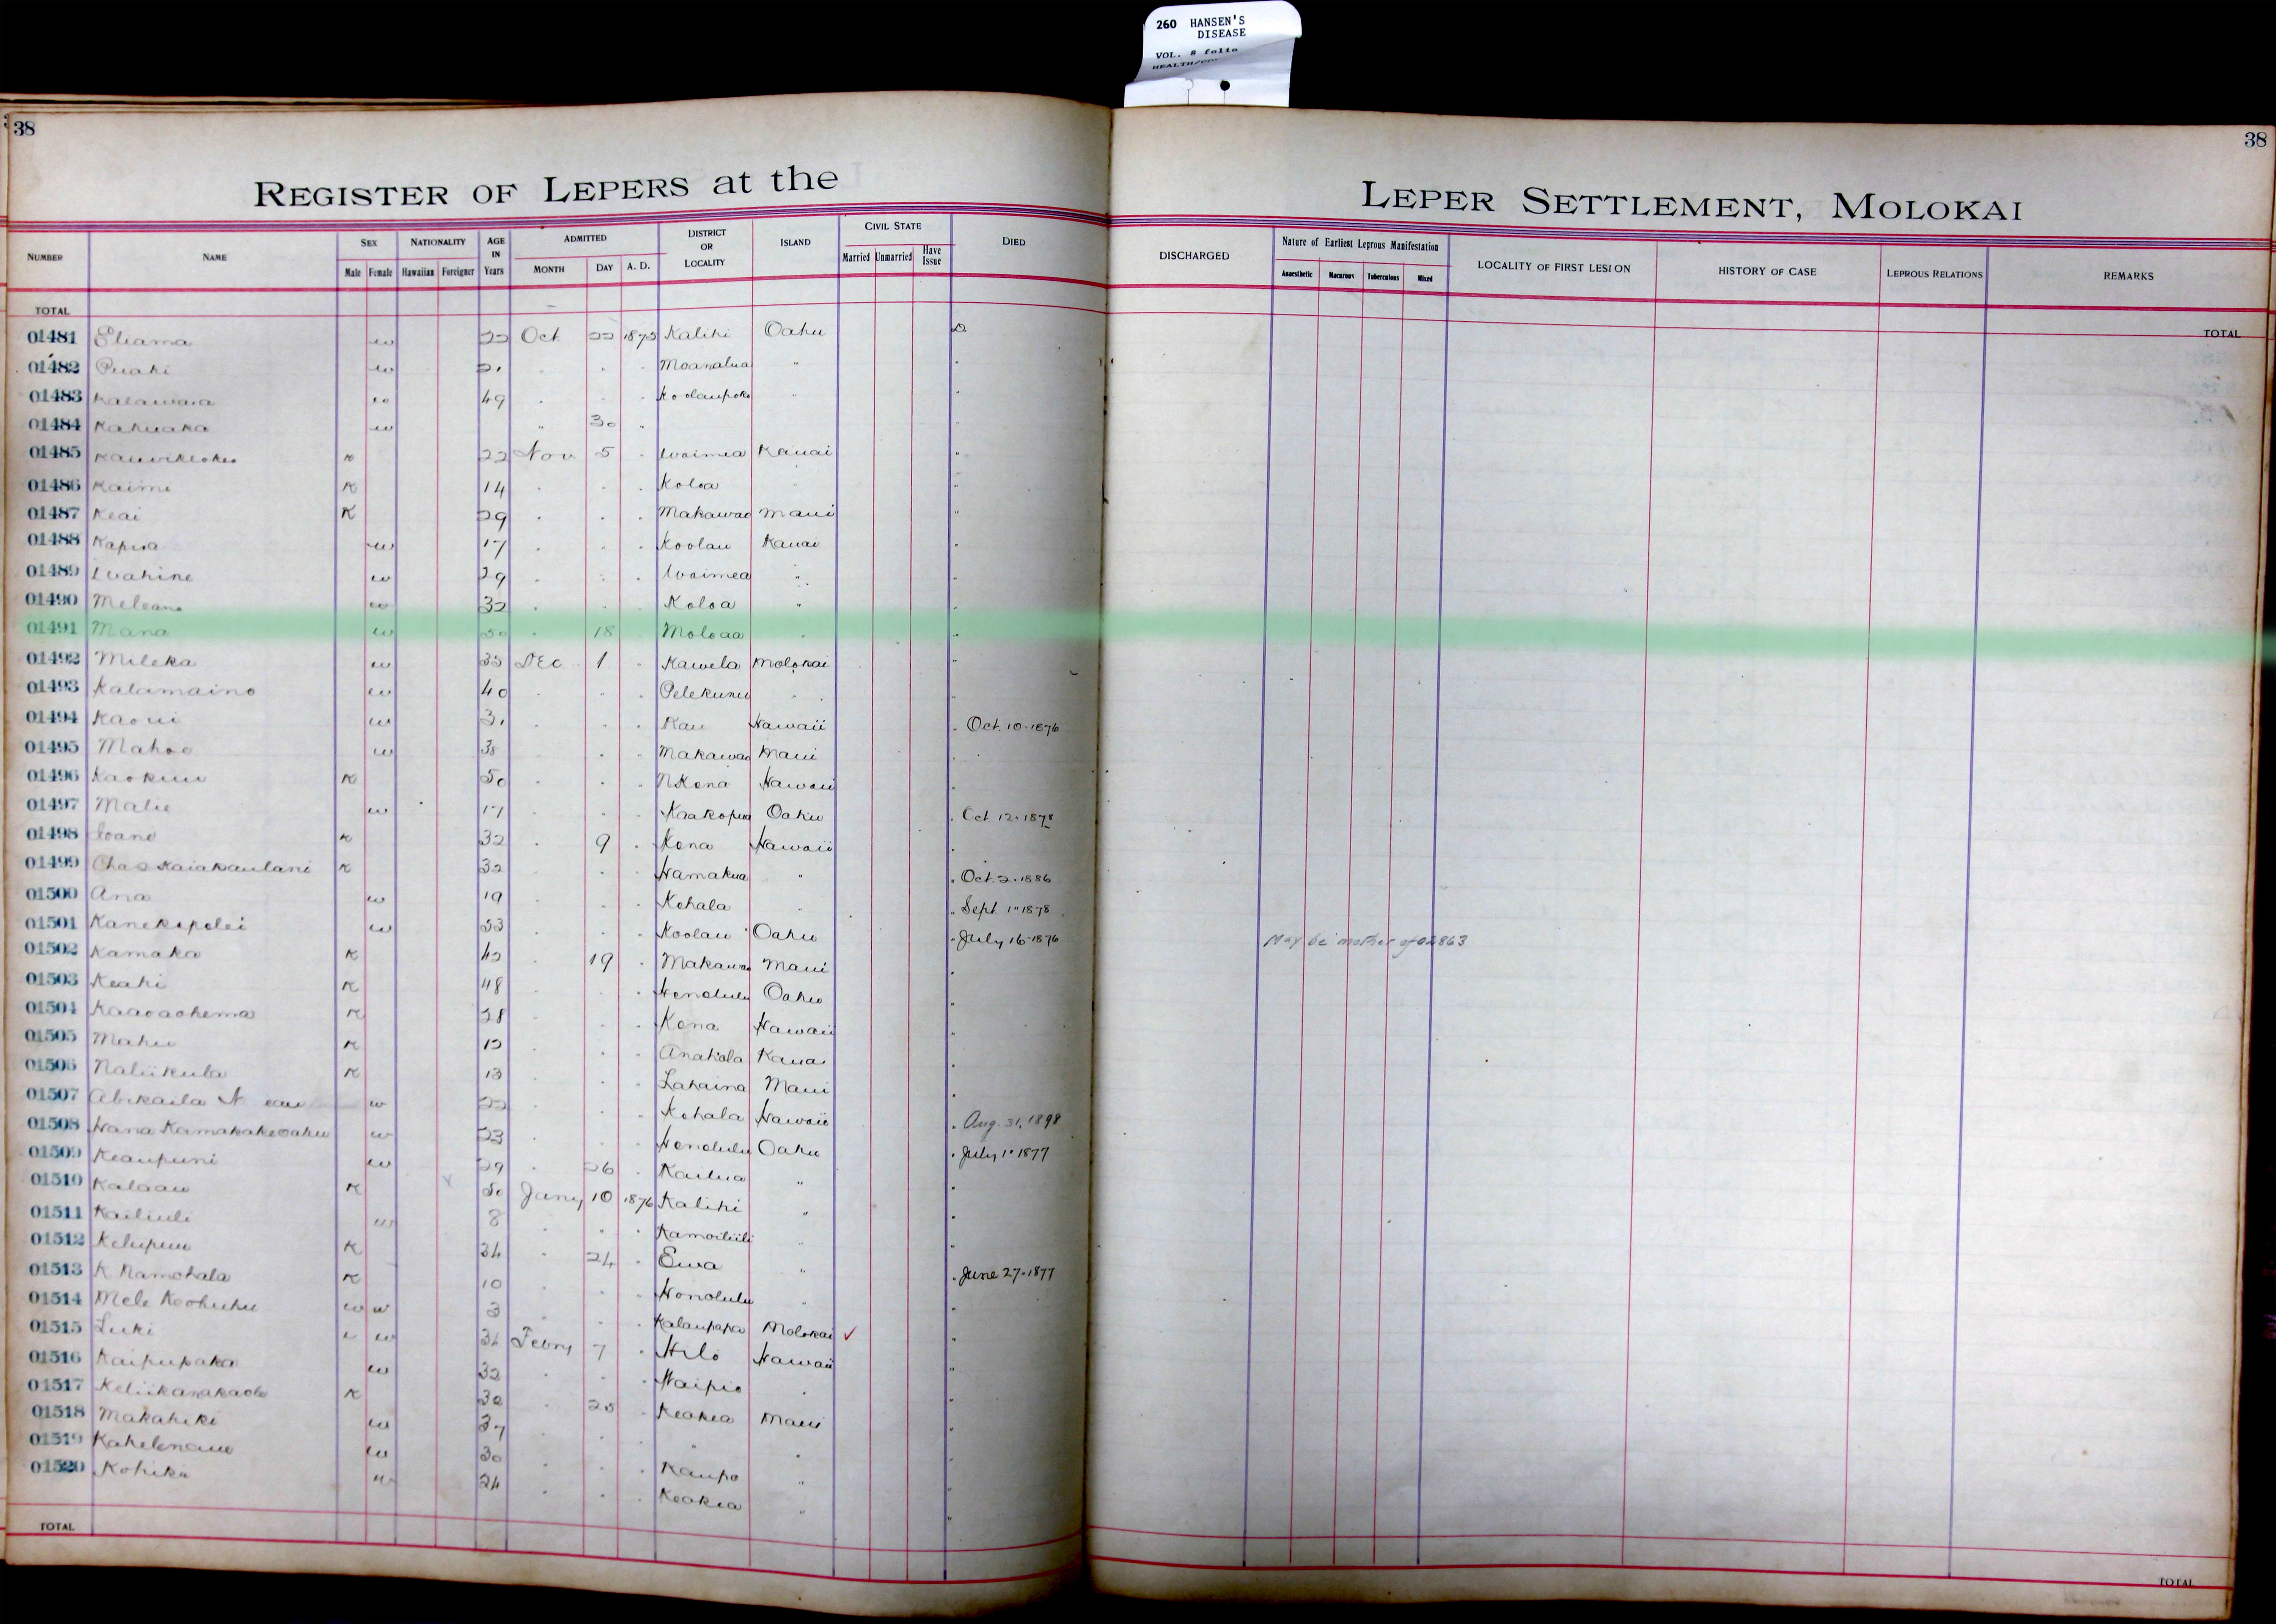 260 HANSEN'S
DISEASE
VOL. 8 folio
38
38
REGISTER OF LEPERS at the LEPER SETTLEMENT, MOLOKAI
NUMBER NAME SEX Male Female NATIONALITY Hawaiian Foreigner AGE IN Years ADMITTED MONTH DAY A. D. DISTRICT OR LOCALITY ISLAND CIVIL STATE Married Unmarried Have Issue DIED DISCHARGED Nature of Earliest Leprous Manifestation Anaesthetic Macurous Tuberculous Mixed LOCALITY OF FIRST LESION HISTORY OF CASE LEPROUS RELATIONS REMARKS
TOTAL TOTAL
01481 Eliama w 22 Oct 22 1875 Kalihi Oahu D
01482 Puahi w 21 " " " Moanalua "
01483 w 49 " " " Koolaupoko "
01484 Kahuaka w " 30 "
01485 K 22 Nov 5 " Waimea Kauai "
01486 Kaimi K 14 " " " Koloa "
01487 Keai K 29 " " " Makawao Maui "
01488 w 17 " " " Koolau Kauai "
01489 Wahine w 29 " " " Waimea " "
01490 Meleana w 32 " " " Koloa " "
01491 Mana w 50 " 18 " Moloaa " "
01492 Mileka w 35 Dec 1 " Kawela Molokai "
01493 Kalamaino w 40 " " " Pelekunu " "
01494 Kaoui w 31 " " " Kau Hawaii " Oct. 10. 1876
01495 Mahoe w 38 " " " Makawao Maui "
01496 K 50 " " " N Kona Hawaii "
01497 Malie w 17 " " " Kaakopua Oahu " Oct 12. 1878
01498 Ioane K 32 " 9 " Kona Hawaii "
01499 Chas Kaiakaulani K 32 " " " Hamakua " " Oct. 2. 1886
01500 Ana w 19 " " " Kohala " " Sept. 1" 1878
01501 Kanekapolei w 53 " " " Koolau Oahu " July 16 1876 May be mother of 02863
01502 Kamaka K 42 " 19 " Makawao Maui "
01503 Keahi K 48 " " " Honolulu Oahu "
01504 K 28 " " " Kona Hawaii "
01505 Mahu K 12 " " " Anahola Kauai "
01506 Naliikula K 13 " " " Lahaina Maui "
01507 Abikaila w 22 " " " Kohala Hawaii " Aug. 31, 1898
01508 Hana Kamakakeoahu w 23 " " " Honolulu Oahu " July 1" 1877
01509 Keaupuni w 29 " 26 " Kailua " "
01510 Kalaau K 50 Jany 10 1876 Kalihi " "
01511 Kailiuli w 8 " " " Kamoiliili " "
01512 K 34 " 24 " Ewa " " June 27. 1877
01513 K Namohala K 10 " " " Honolulu " "
01514 Mele Keohuhu w w 3 " " " Kalaupapa Molokai ✓ "
01515 Luki w 34 Febry 7 " Hilo Hawaii "
01516 Kaipupaka w 32 " " " Waipio " "
01517 Keliikanakaole K 30 " 20 " Keokea Maui "
01518 Makahiki w 37 " " " " " "
01519 Kahelenaue w 30 " " " Kaupo " "
01520 Kohika w 24 " " " Keokea " "
TOTAL TOTAL